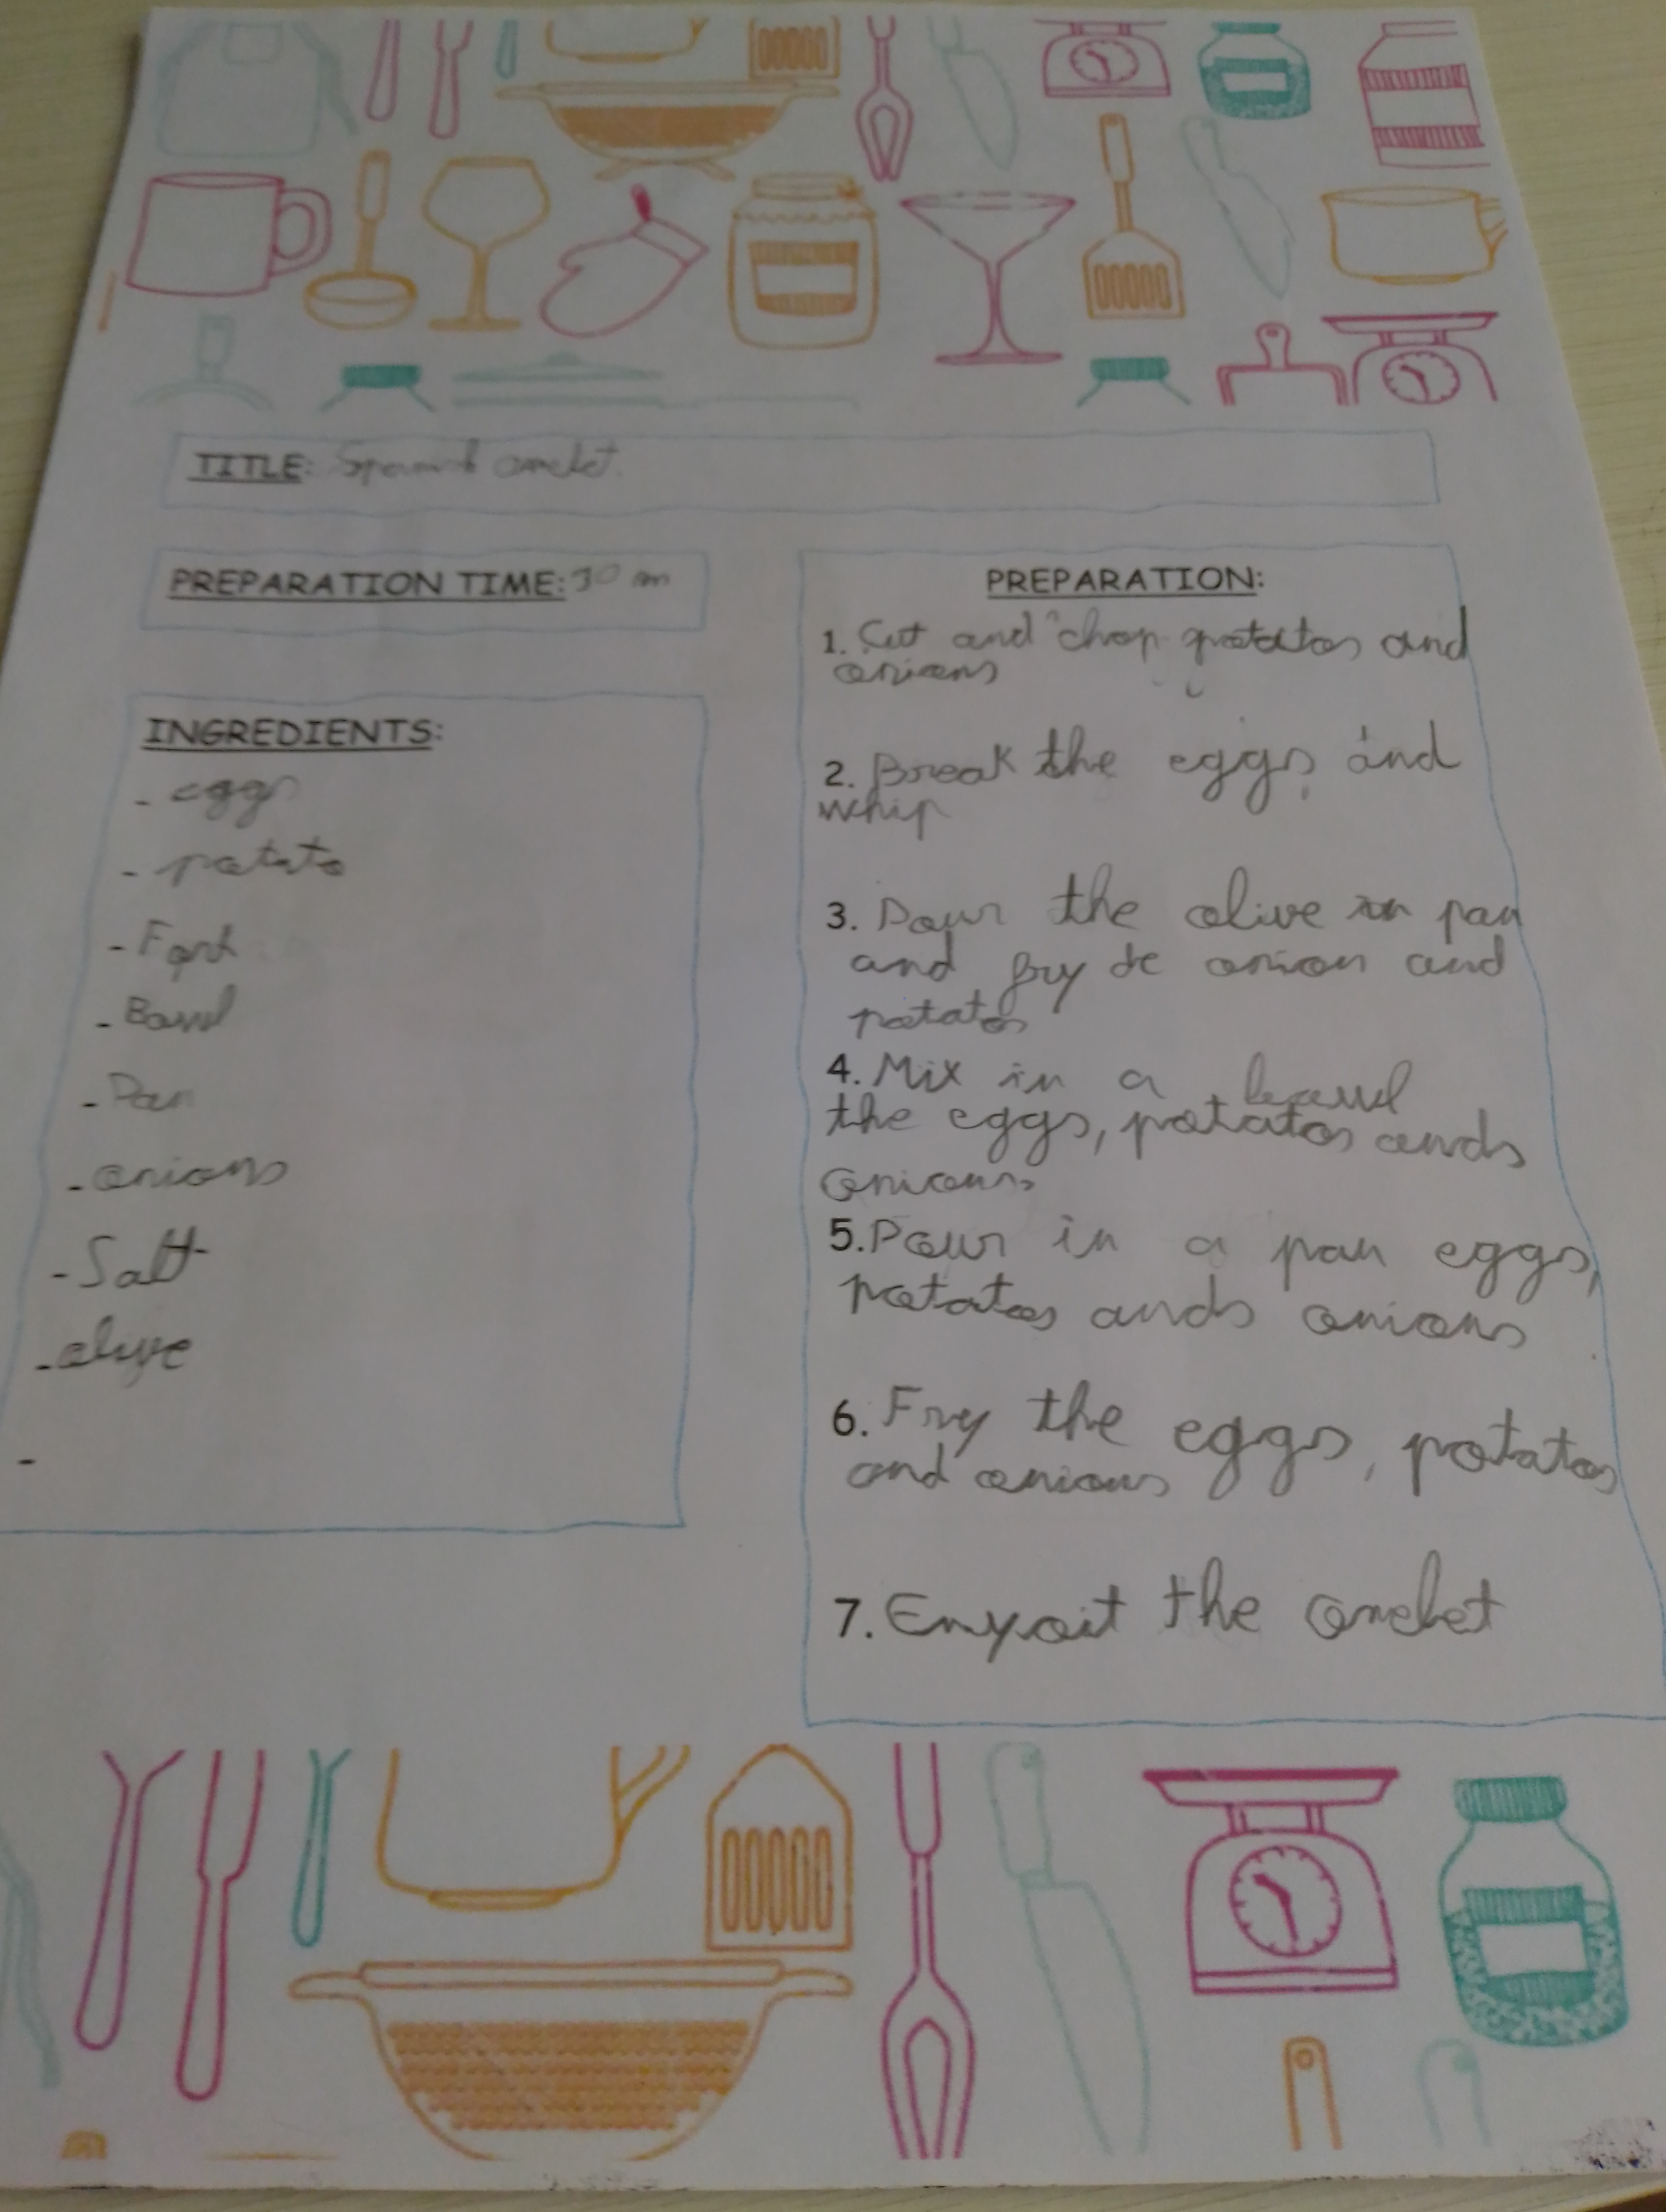 TITLE: Spanish omelet.
PREPARATION TIME: 30 m
INGREDIENTS:
- eggs
- potato
- Fork
- Bowl
- Pan
- onions
- Salt
- olive
-
PREPARATION:
1. Cut and chop potatos and
onions
2. Break the eggs and
whip
3. Pour the olive in pan
and fry de onion and
potatos
4. Mix in a bowl
the eggs, potatos ands
onions
5. Pour in a pan eggs,
potatoes ands onions
6. Fry the eggs, potatos
and onions
7. Enyoit the omelet